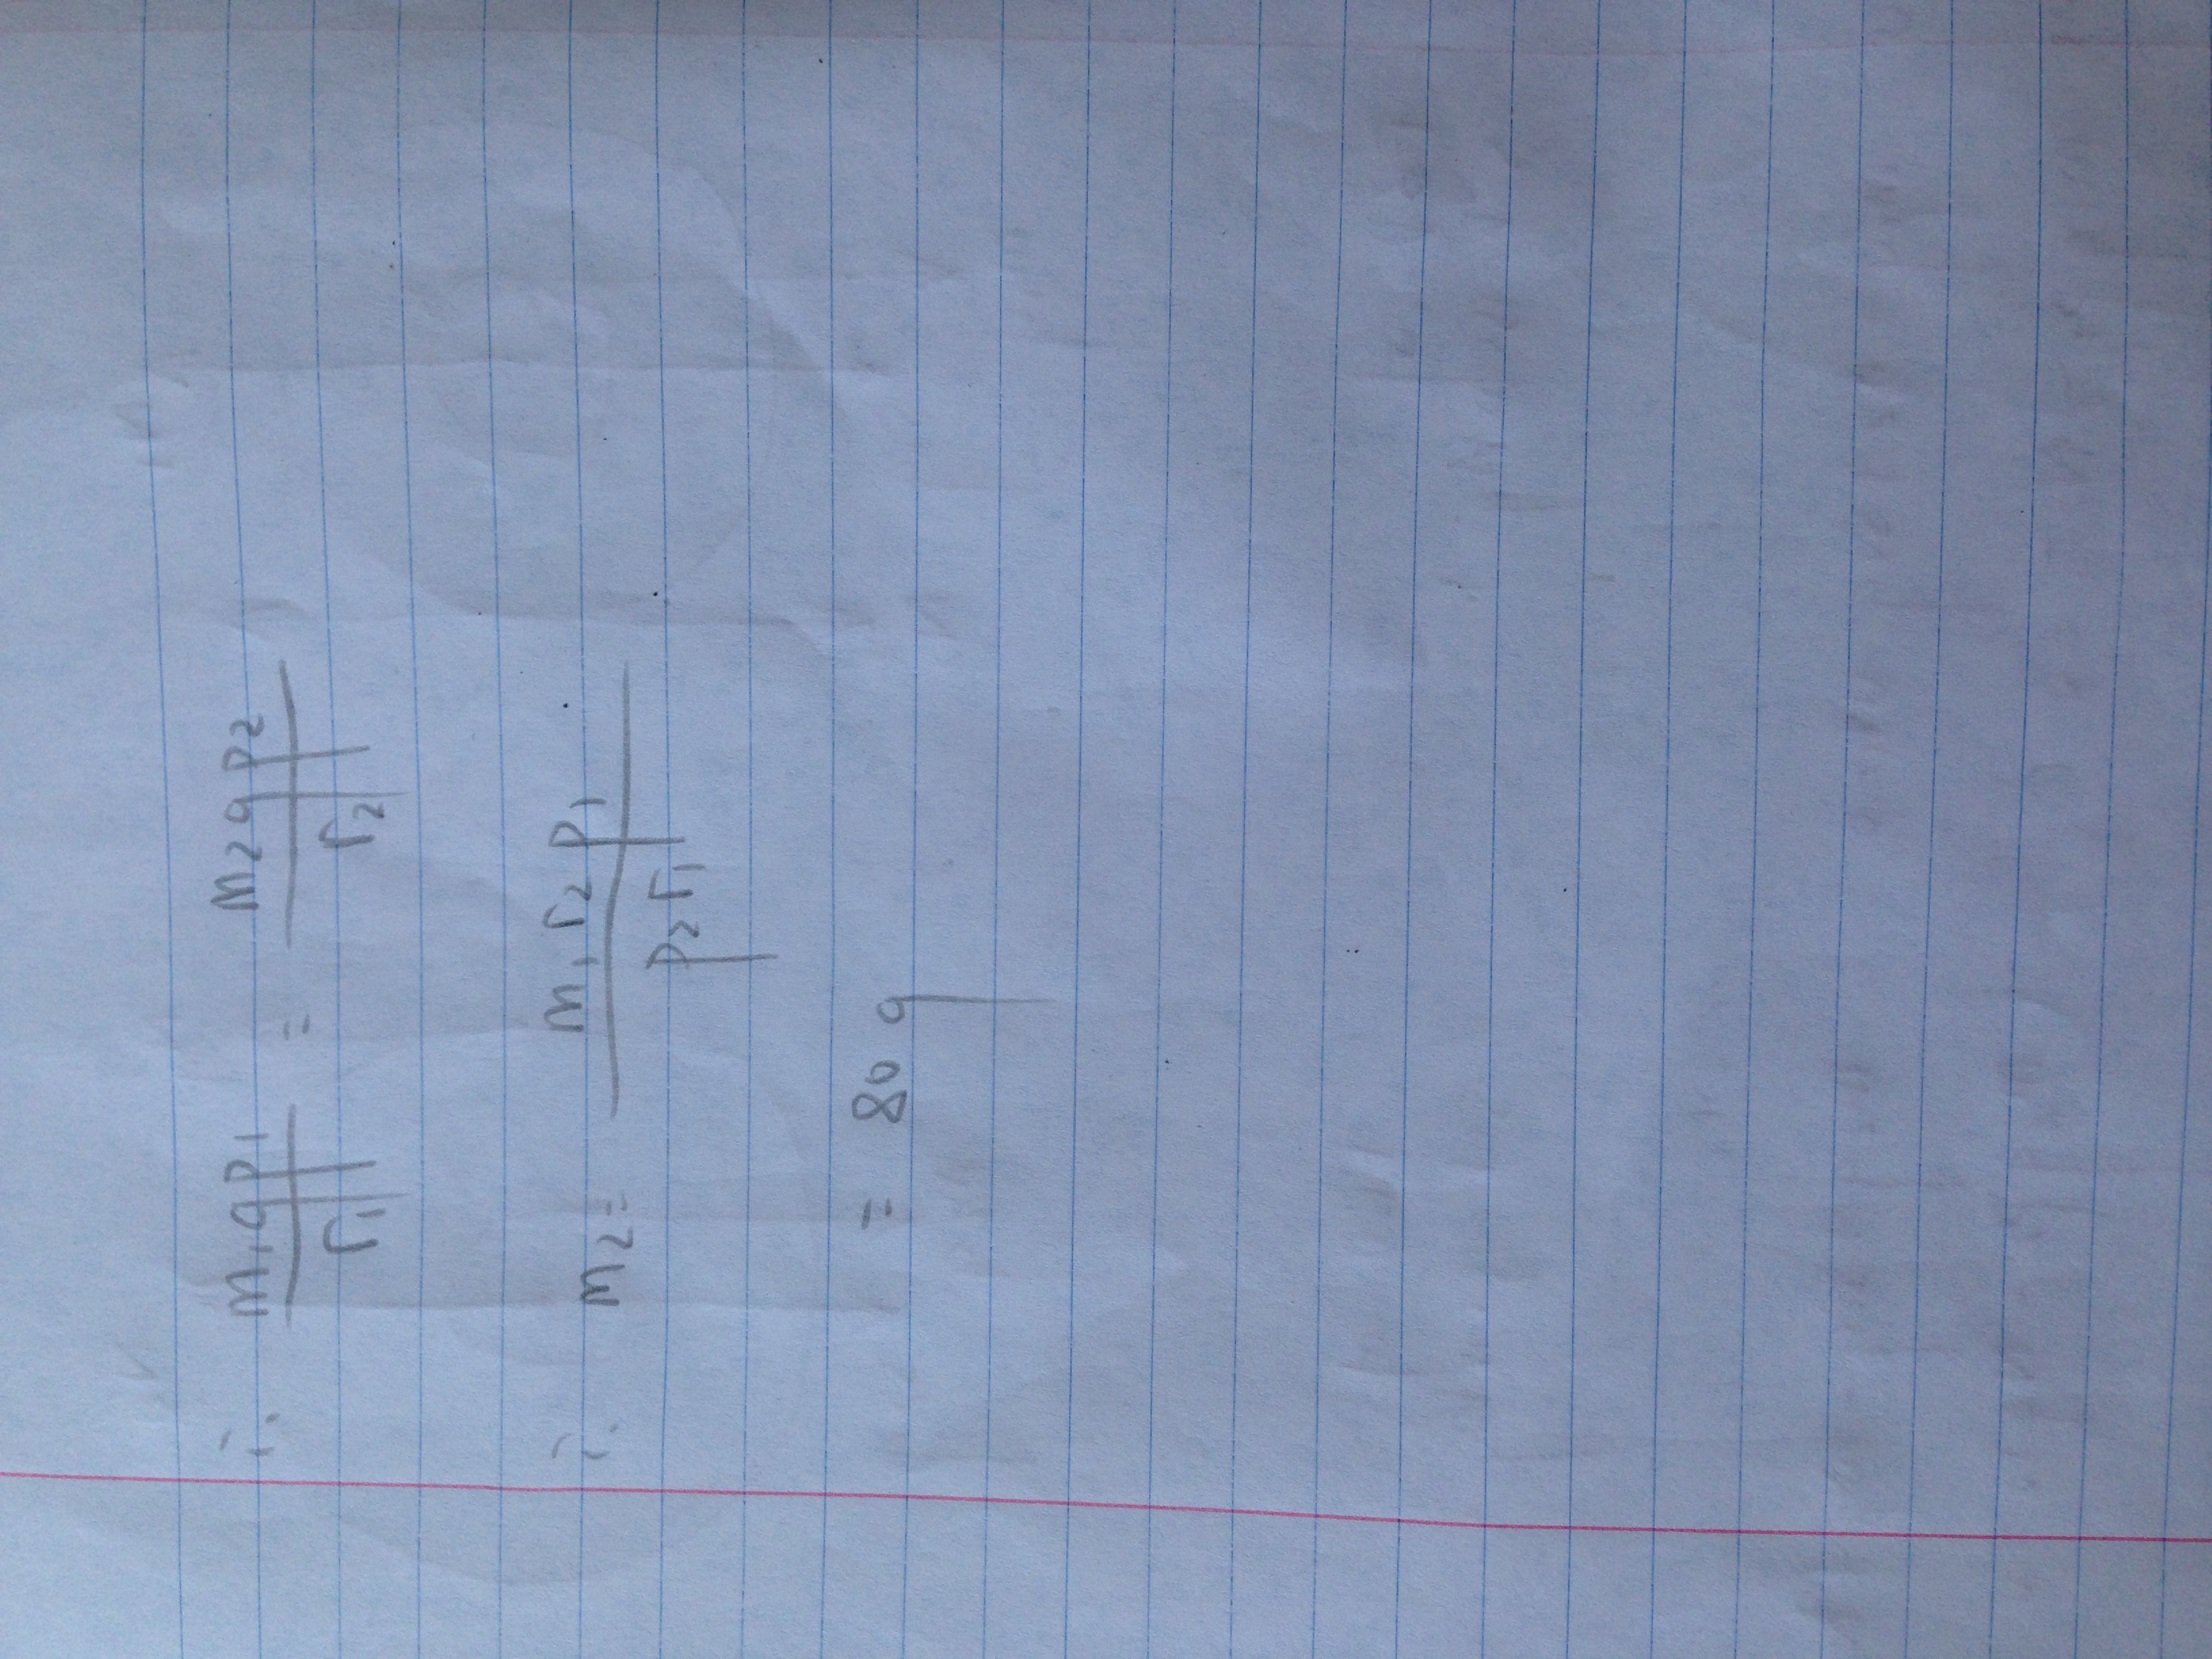 ∴ m₁gp₁/r₁ = m₂gp₂/r₂
∴ m₂ = m₁r₂p₁/p₂r₁
= 80 g